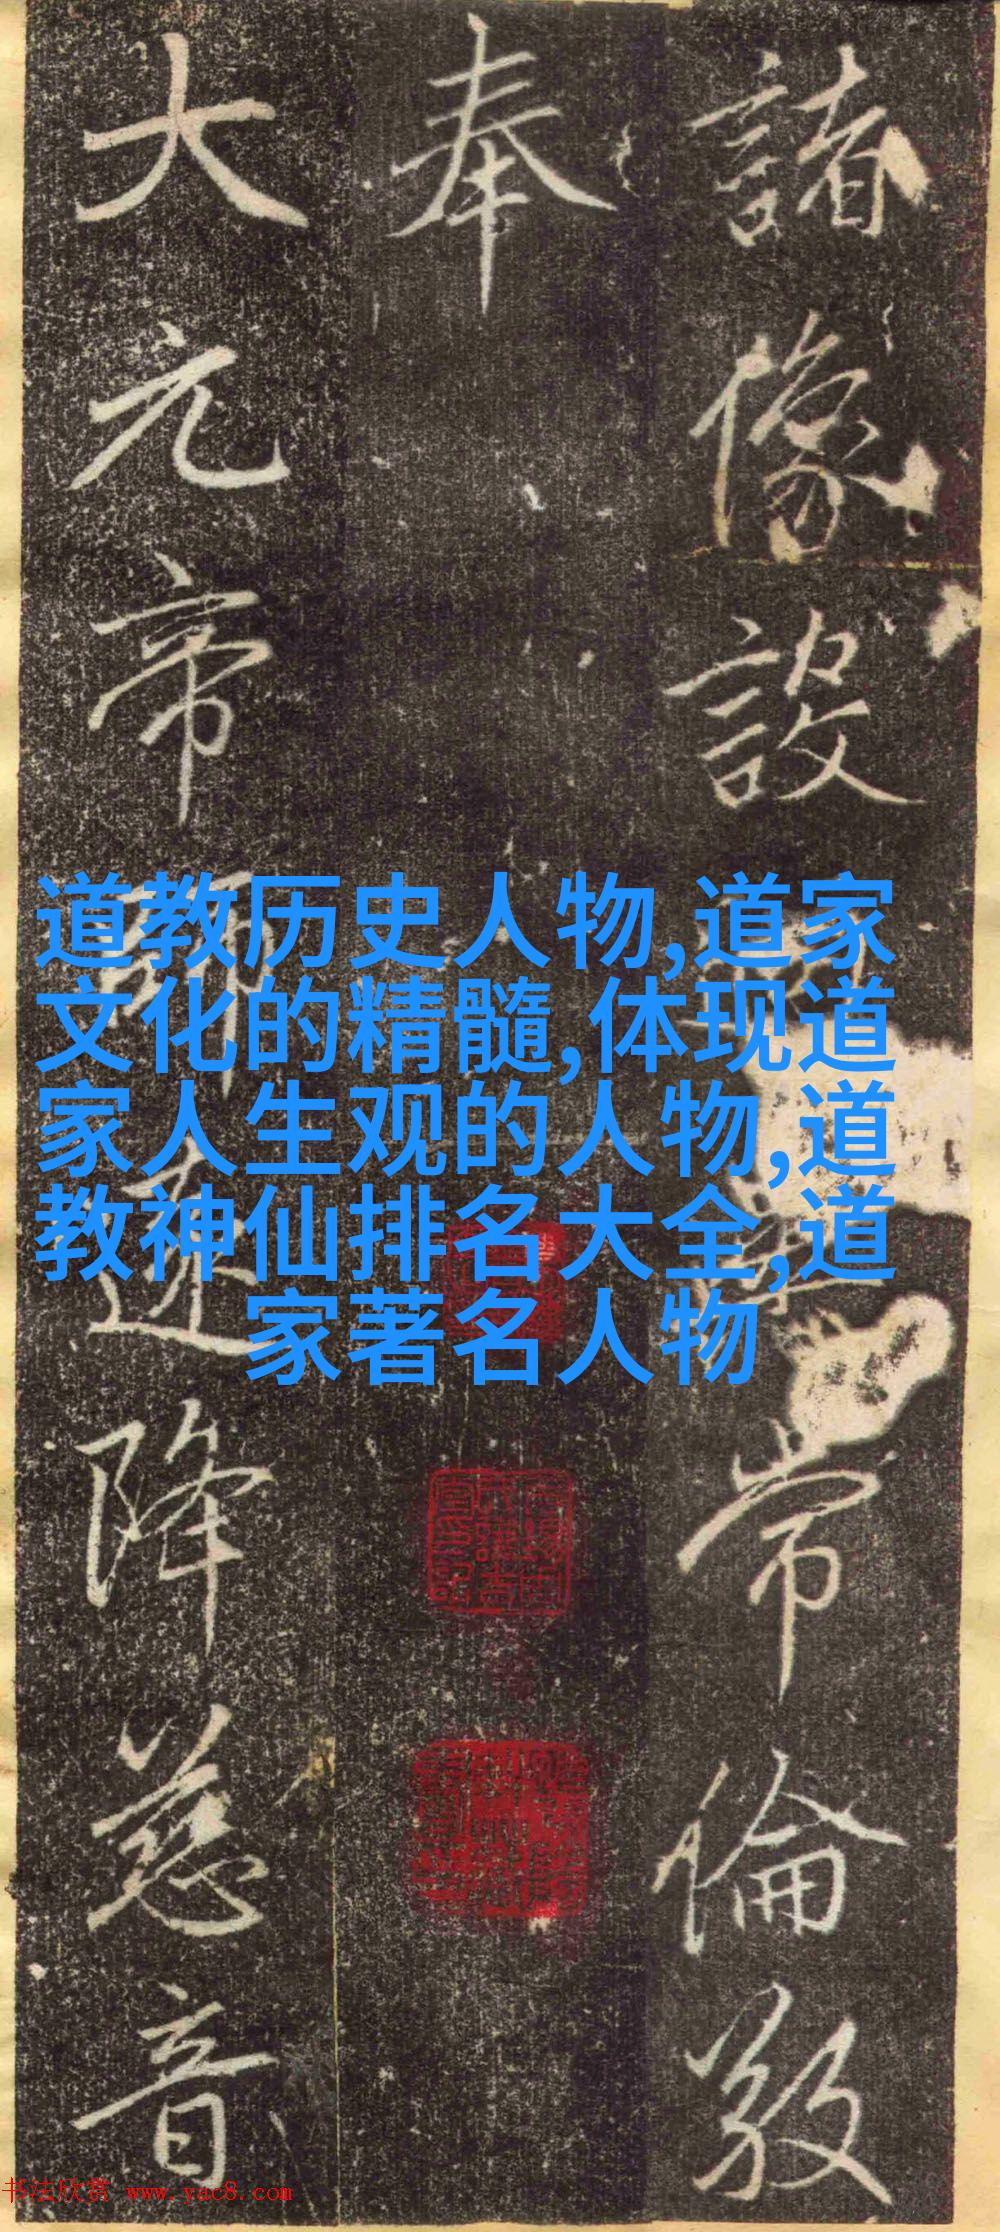 諸像設常倫
奉
大元帝師降慈音
道教历史人物,道家
文化的精髓,体现道
家人生观的人物,道
教神仙排名大全,道
家著名人物
书法欣赏 www.yac8.com